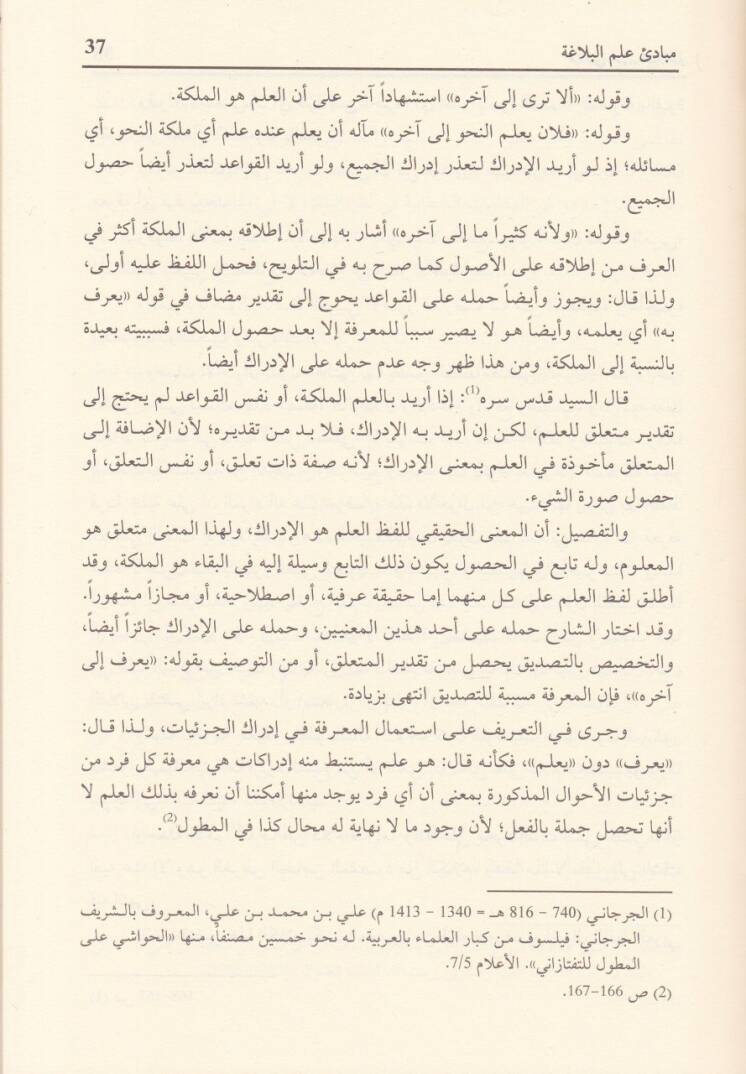 مبادئ علم البلاغة
37
وقوله: «ألا ترى إلى آخره» استشهاداً آخر على أن العلم هو الملكة.
وقوله: «فلان يعلم النحو إلى آخره» مآله أن يعلم عنده علم أي ملكة النحو، أي
مسائله؛ إذ لو أريد الإدراك لتعذر إدراك الجميع، ولو أريد القواعد لتعذر أيضاً حصول
الجميع.
وقوله: «ولأنه كثيراً ما إلى آخره» أشار به إلى أن إطلاقه بمعنى الملكة أكثر في
العرف من إطلاقه على الأصول كما صرح به في التلويح، فحمل اللفظ عليه أولى،
ولذا قال: ويجوز وأيضاً حمله على القواعد يحوج إلى تقدير مضاف في قوله «يعرف
به» أي يعلمه، وأيضاً هو لا يصير سبباً للمعرفة إلا بعد حصول الملكة، فسببيته بعيدة
بالنسبة إلى الملكة، ومن هذا ظهر وجه عدم حمله على الإدراك أيضاً.
قال السيد قدس سره(1): إذا أريد بالعلم الملكة، أو نفس القواعد لم يحتج إلى
تقدير متعلق للعلم، لكن إن أريد به الإدراك، فلا بد من تقديره؛ لأن الإضافة إلى
المتعلق مأخوذة في العلم بمعنى الإدراك؛ لأنه صفة ذات تعلق، أو نفس التعلق، أو
حصول صورة الشيء.
والتفصيل: أن المعنى الحقيقي للفظ العلم هو الإدراك، ولهذا المعنى متعلق هو
المعلوم، وله تابع في الحصول يكون ذلك التابع وسيلة إليه في البقاء هو الملكة، وقد
أطلق لفظ العلم على كل منهما إما حقيقة عرفية، أو اصطلاحية، أو مجازاً مشهوراً.
وقد اختار الشارح حمله على أحد هذين المعنيين، وحمله على الإدراك جائزاً أيضاً،
والتخصيص بالتصديق يحصل من تقدير المتعلق، أو من التوصيف بقوله: «يعرف إلى
آخره»، فإن المعرفة مسببة للتصديق انتهى بزيادة.
وجرى في التعريف على استعمال المعرفة في إدراك الجزئيات، ولذا قال:
«يعرف» دون «يعلم»، فكأنه قال: هو علم يستنبط منه إدراكات هي معرفة كل فرد من
جزئيات الأحوال المذكورة بمعنى أن أي فرد يوجد منها أمكننا أن نعرفه بذلك العلم لا
أنها تحصل جملة بالفعل؛ لأن وجود ما لا نهاية له محال كذا في المطول(2).
(1) الجرجاني (740 – 816 هـ = 1340 – 1413 م) علي بن محمد بن علي، المعروف بالشريف
الجرجاني: فيلسوف من كبار العلماء بالعربية. له نحو خمسين مصنفاً، منها «الحواشي على
المطول للتفتازاني». الأعلام 7/5.
(2) ص 166–167.